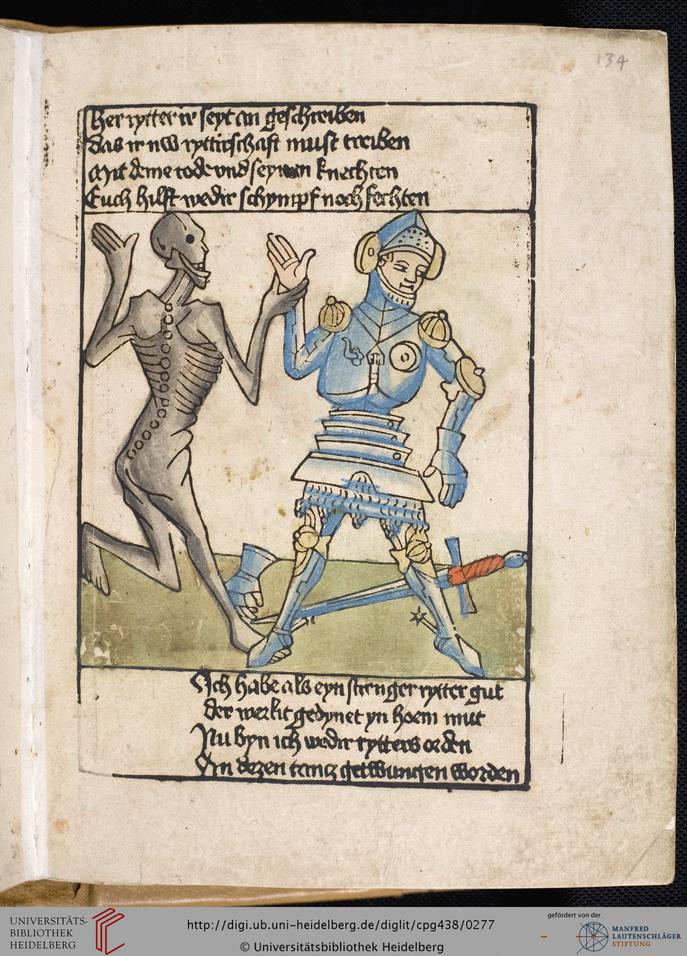 134
Her rytter ir seyt an geschreiben
Das ir nw ryttirschaft must treiben
Mit deme tode vnd seynen knechten
Euch hilft wedir schympf noch fechten
Ich habe als eyn strenger rytter gut
der werlit gedynet yn hoem mut
Nu byn ich wedir rytters orden
An dezen tantz getwungen worden
UNIVERSITÄTS-
BIBLIOTHEK
HEIDELBERG
http://digi.ub.uni-heidelberg.de/diglit/cpg438/0277
© Universitätsbibliothek Heidelberg
gefördert von der
MANFRED
LAUTENSCHLÄGER
STIFTUNG